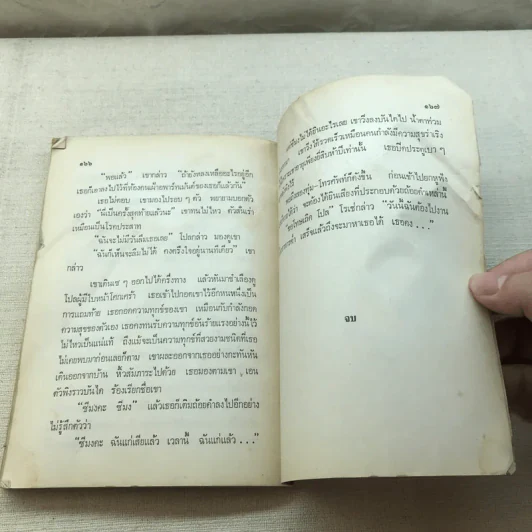 ๑๖๖
"พอแล้ว" เขากล่าว "ถ้ายังหลงเหลืออะไรอยู่อีก
เธอก็เอาลงไปไว้ที่ห้องคนเฝ้ายามร้านมันต์ของเธอก็แล้วกัน"
เธอไม่ตอบ เขามองไปรอบ ๆ ตัว พยายามบอกตัว
เองว่า "มันเป็นครั้งสุดท้ายแล้วนะ" เขาทนไม่ไหว ตัวสั่นเร่า
เหมือนเป็นโรคประสาท
"ฉันจะไม่มีวันลืมเธอเลย" โปลกล่าว มองดูเขา
"ฉันก็เห็นจะไม่ลืมได้ คงตรึงใจอยู่นานทีเดียว" เขา
กล่าว
เขาเดินเซ ๆ ออกไปได้ครึ่งทาง แล้วหันมาชำเลืองดู
โปลผู้มีใบหน้าโศกเศร้า เธอเข้าไปกอดเขาไว้อีกหนหนึ่งเป็น
การแถมท้าย เธอกอดความทุกข์ของเขา เหมือนกับกำลังกอด
ความสุขของตัวเอง เธอคงทนรับความทุกข์อันร้ายแรงอย่างนี้ไว้
ไม่ไหวเป็นแน่แท้ ถึงแม้จะเป็นความทุกข์ที่สวยงามชนิดที่เธอ
ไม่เคยพบมาก่อนเลยก็ตาม เขาผละออกจากเธออย่างกะทันหัน
เดินออกจากบ้าน หิ้วสัมภาระไปด้วย เธอมองตามเขา เอน
ตัวพิงราวบันได ร้องเรียกชื่อเขา
"ซีมงคะ ซีมง" แล้วเธอก็เติมถ้อยคำลงไปอีกอย่าง
ไม่รู้สึกตัวว่า
"ซีมงคะ ฉันแก่เสียแล้ว เวลานี้ ฉันแก่แล้ว..."
๑๖๗
ไม่ได้ยินอะไรเลย เขาวิ่งลงบันไดไป น้ำตาท่วม
เขาวิ่งได้รวดเร็วเหมือนคนกำลังมีความสุขร่าเริง
อายุเพียงยี่สิบห้าปีเท่านั้น เธอปิดประตูเบา ๆ
พิงไว้
ทุ่ม-โทรศัพท์ก็ดังขึ้น ก่อนเข้าไปยกหูฟัง
ได้ว่า จะต้องได้ยินเสียงที่ประกอบด้วยถ้อยคำเหล่านี้
โปล" โรเช่กล่าว "วันนี้ฉันต้องไปงาน
เสร็จแล้วถึงจะมาหาเธอได้ เธอคง..."
จบ